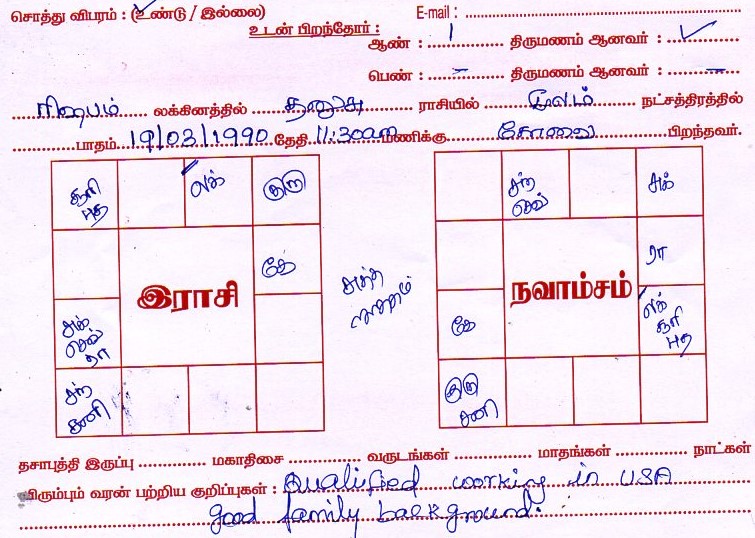 சொத்து விபரம் : (உண்டு / இல்லை) E-mail :
உடன் பிறந்தோர் :
ஆண் : 1 திருமணம் ஆனவர் : ✓
பெண் : – திருமணம் ஆனவர் : –
ரிஷபம் லக்கினத்தில் தனுசு ராசியில் மூலம் நட்சத்திரத்தில்
பாதம் 19/03/1990 தேதி 11:30am மணிக்கு கோவை பிறந்தவர்.
சூரி புத
லக்
குரு
கே
சுக் செவ் ரா
சந் சனி
இராசி
சுத்த
சந் செவ்
சுக்
ரா
கே
லக் சூரி புத
குரு சனி
நவாம்சம்
தசாபுத்தி இருப்பு மகாதிசை வருடங்கள் மாதங்கள் நாட்கள்
விரும்பும் வரன் பற்றிய குறிப்புகள் : Qualified working in USA
good family background.